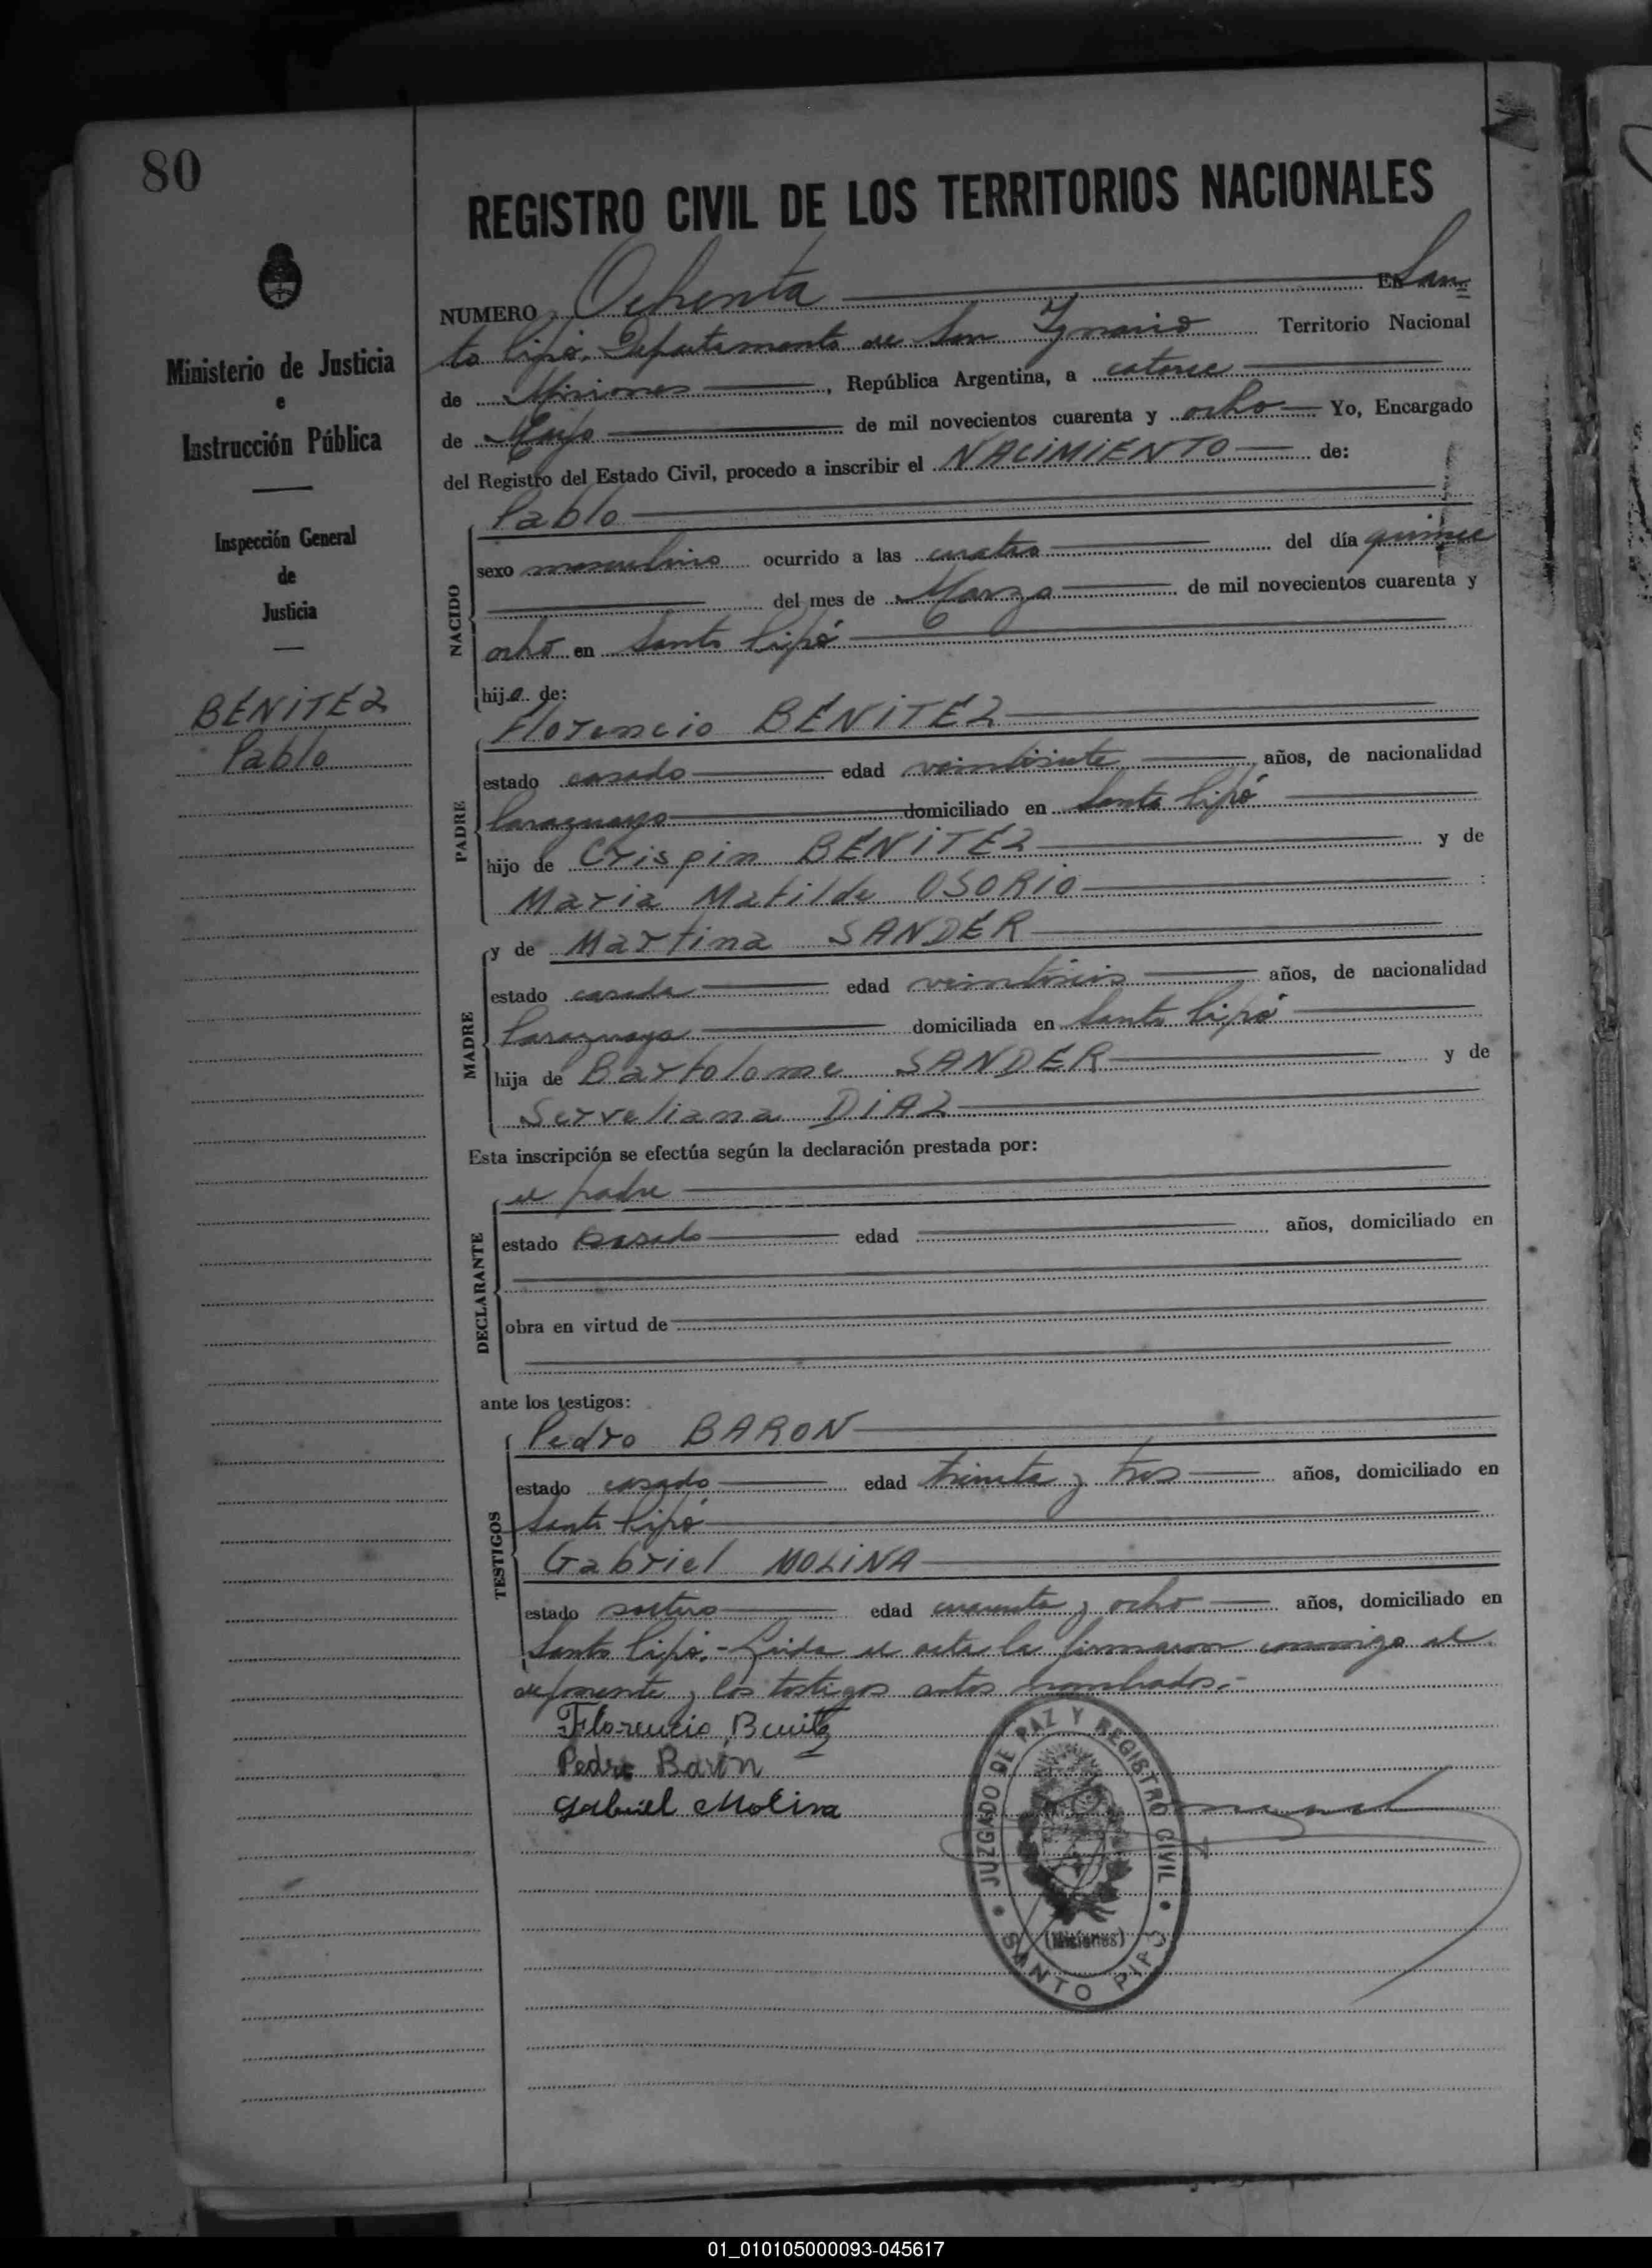 80
REGISTRO CIVIL DE LOS TERRITORIOS NACIONALES
NUMERO Ochenta En San
to Pipó. Departamento de San Ygnacio Territorio Nacional
de Misiones, República Argentina, a catorce
de Mayo de mil novecientos cuarenta y ocho Yo, Encargado
del Registro del Estado Civil, procedo a inscribir el NACIMIENTO de:
Ministerio de Justicia
e
Instrucción Pública
Inspección General
de
Justicia
BENITEZ
Pablo
NACIDO
Pablo
sexo masculino ocurrido a las cuatro del día quince
del mes de Marzo de mil novecientos cuarenta y
ocho en Santo Pipó
hijo de:
PADRE
Florencio BENITEZ
estado casado edad veintisiete años, de nacionalidad
Paraguayo domiciliado en Santo Pipó
hijo de Crispin BENITEZ y de
Maria Matilde OSORIO :
MADRE
y de Martina SANDER
estado casada edad veintiseis años, de nacionalidad
Paraguaya domiciliada en Santo Pipó
hija de Bartolome SANDER y de
Serveliana DIAZ
Esta inscripción se efectúa según la declaración prestada por:
DECLARANTE
el padre
estado casado edad años, domiciliado en
obra en virtud de
ante los testigos:
TESTIGOS
Pedro BARON
estado casado edad treinta y tres años, domiciliado en
Santo Pipó
Gabriel MOLINA
estado soltero edad cuarenta y ocho años, domiciliado en
Santo Pipó.- Leida el acta la firmaron conmigo el
deponente y los testigos antes nombrados.-
Florencio Benitz
Pedro Barón
Gabriel Molina
JUZGADO DE PAZ Y REGISTRO CIVIL
(Misiones)
SANTO PIPÓ
01_010105000093-045617